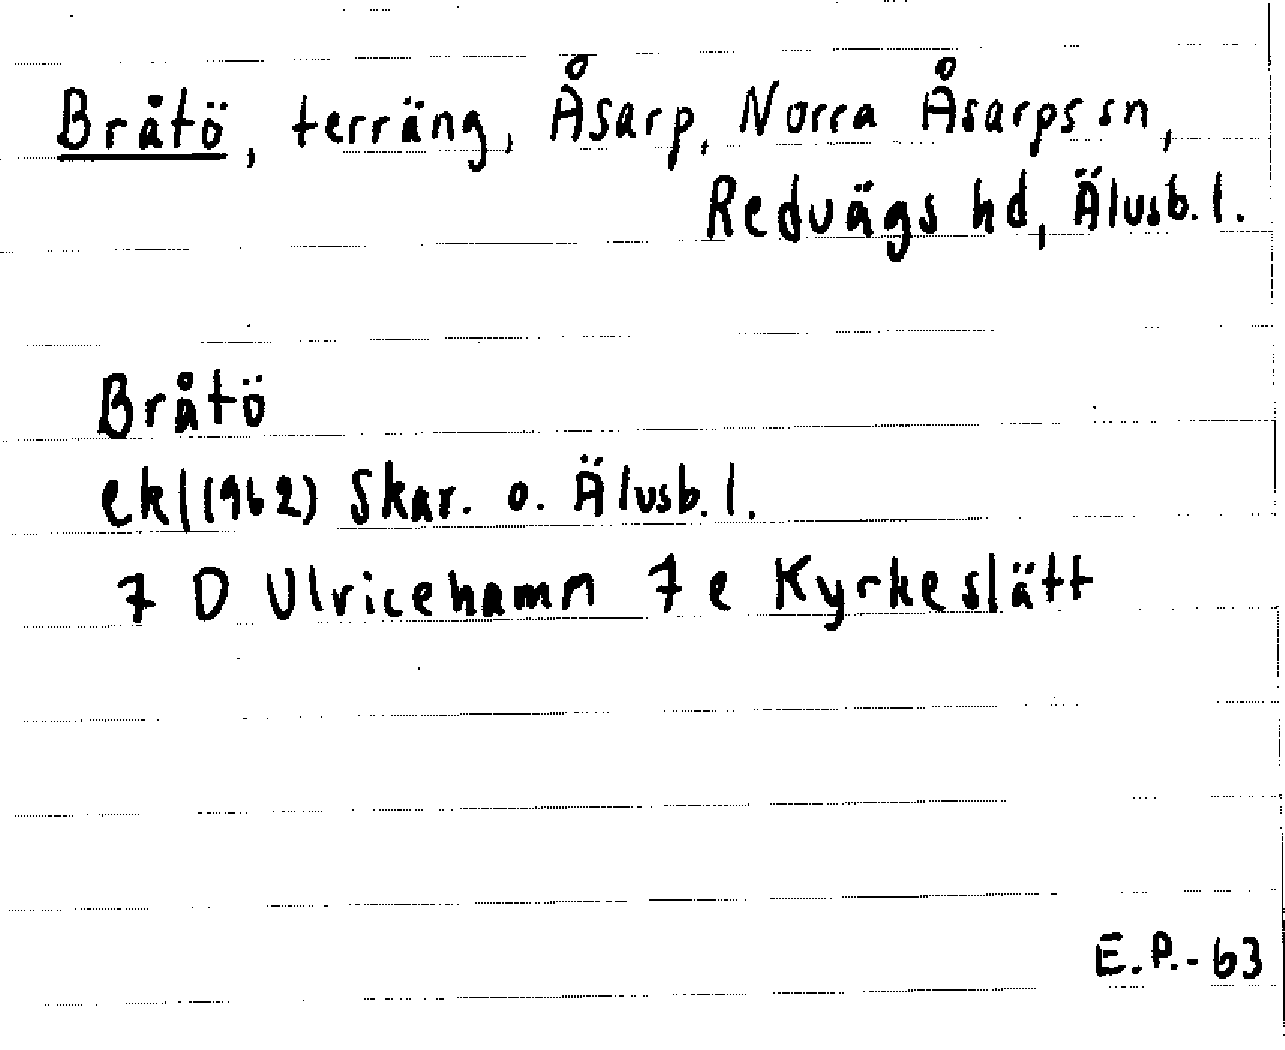 Bråtö, terräng, Åsarp, Norra Åsarps sn,
Redvägs hd, Älvsb. l.
Bråtö
ekl(1962) Skar. o. Älvsb. l.
7 D Ulricehamn 7 e Kyrkeslätt
E.P.-63